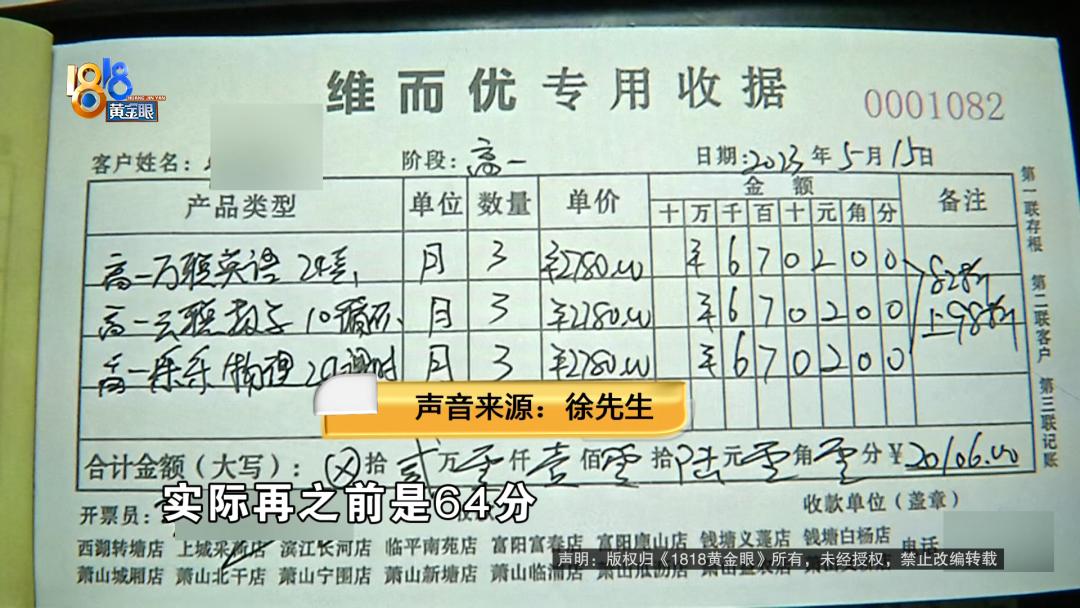 1818
HUANG JIN YAN
黄金眼
维而优专用收据
0001082
客户姓名：
阶段：高一
日期：2023年5月15日
产品类型 单位 数量 单价 金额 备注
十 万 千 百 十 元 角 分
高一 英语 月 3 ¥2780.00 ¥670200 828折
高一 数学 10循环 月 3 ¥2780.00 ¥670200
高一乐乐物理 课时 月 3 ¥2780.00 ¥670200
第一联存根
第二联客户
第三联记账
声音来源：徐先生
合计金额（大写）：拾贰万零仟壹佰零拾陆元零角零分¥20106.00
实际再之前是64分
开票员：
收款单位（盖章）
西湖转塘店 上城采荷店 滨江长河店 临平南苑店 富阳富春店 富阳鹿山店 钱塘义蓬店 钱塘白杨店 电话
声明：版权归《1818黄金眼》所有，未经授权，禁止改编转载
萧山城厢店 萧山北干店 萧山宁围店 萧山新塘店 萧山临浦店